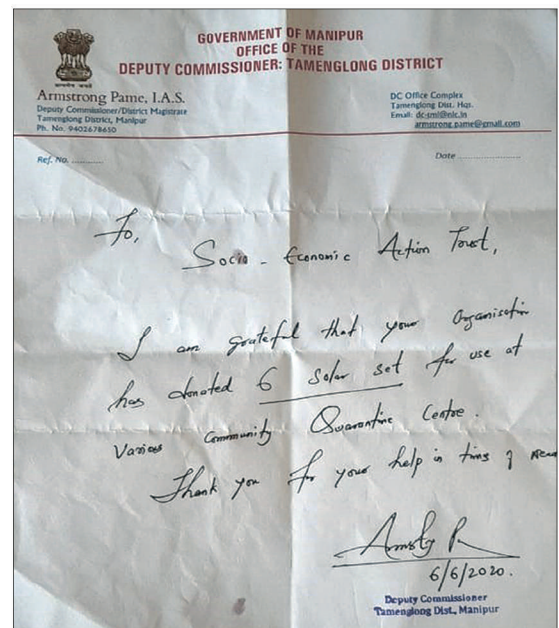 GOVERNMENT OF MANIPUR
OFFICE OF THE
DEPUTY COMMISSIONER: TAMENGLONG DISTRICT
Armstrong Pame, I.A.S.
Deputy Commissioner/District Magistrate
Tamenglong District, Manipur
Ph. No. 9402678650
DC Office Complex
Tamenglong Dist. Hqs.
Email: dc-tml@nic.in
armstrong.pame@gmail.com
Ref. No. ...........
Date ........................
To,
Socio - Economic Action Trust,
I am grateful that your Organisation
has donated 6 Solar set for use at
Various Community Quarantine Centre.
Thank you for your help in time of need
6/6/2020.
Deputy Commissioner
Tamenglong Dist., Manipur